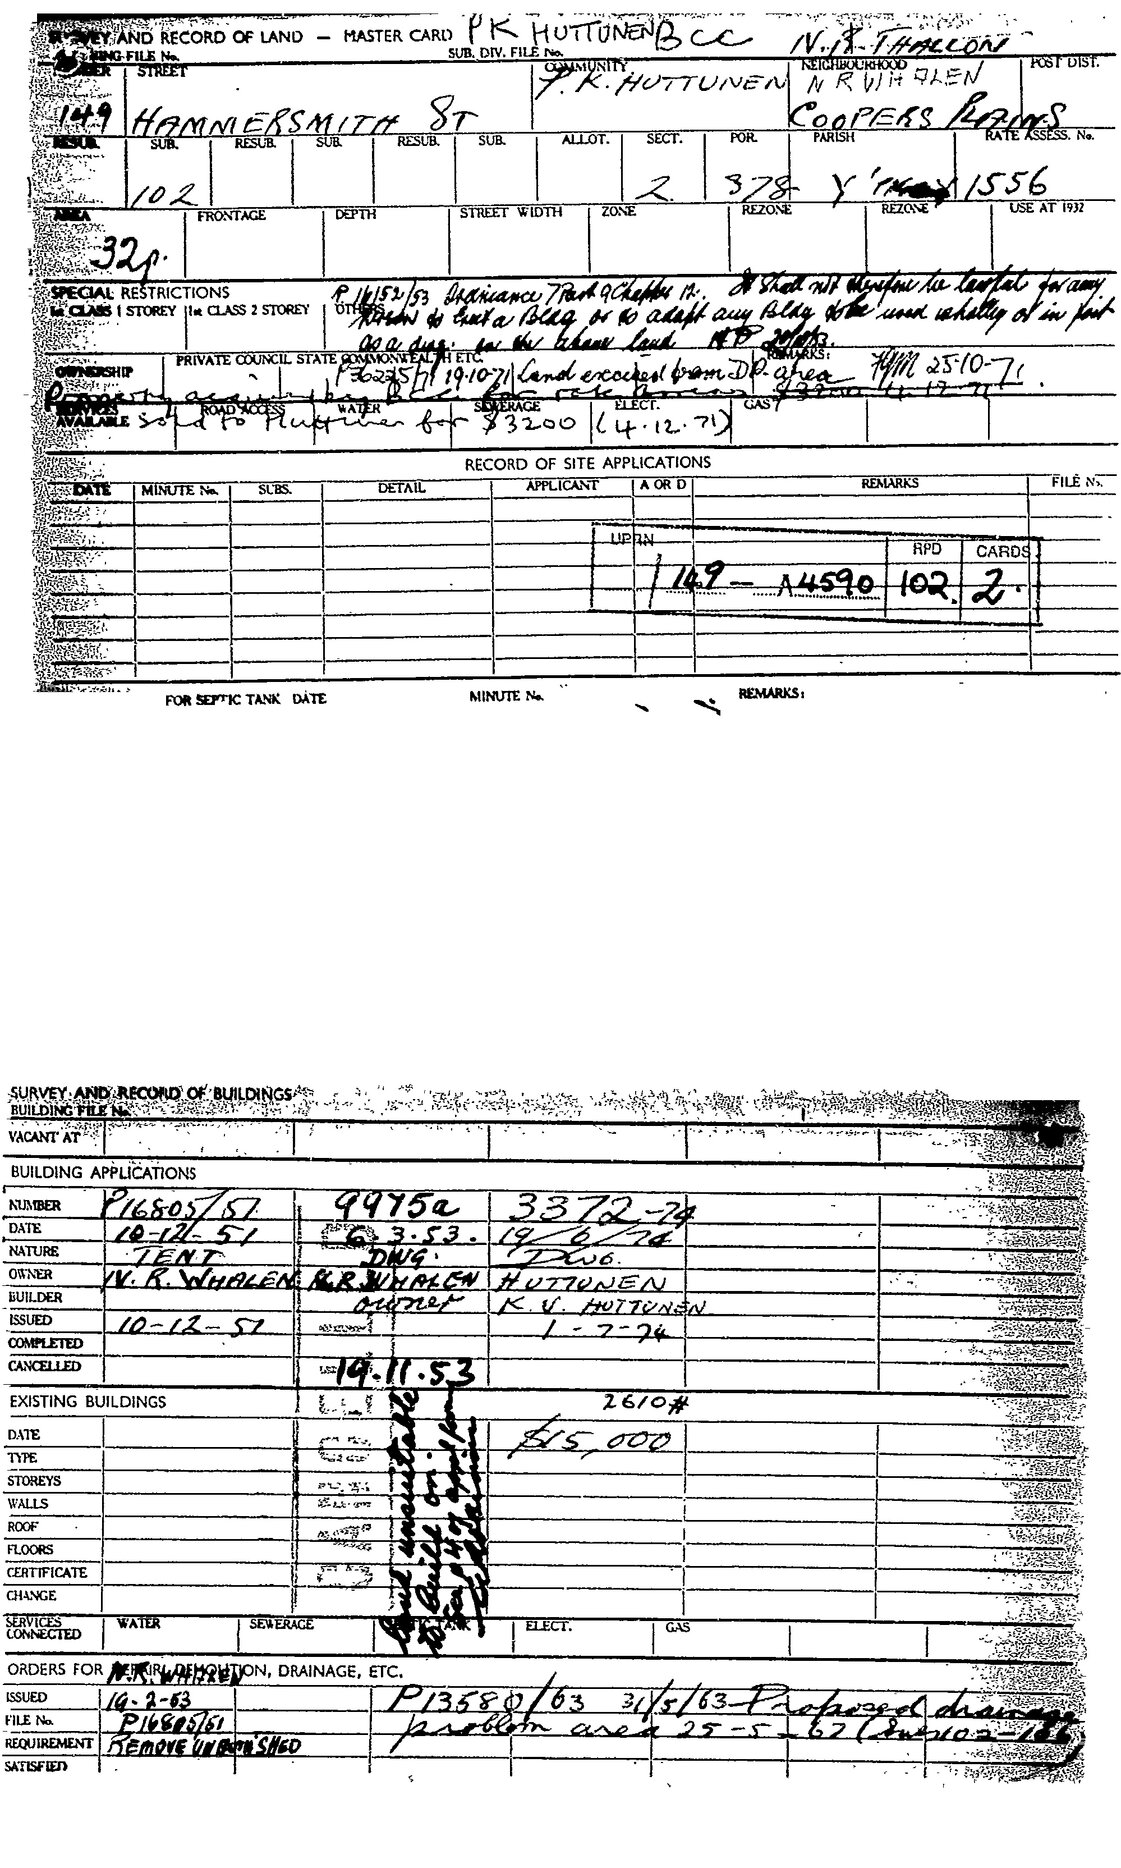 SURVEY AND RECORD OF LAND — MASTER CARD P K HUTTUNEN B C C N. R. THALLON
FILE No. SUB. DIV. FILE No.
STREET COMMUNITY NEIGHBOURHOOD POST DIST.
P. K. HUTTUNEN N R WHALEN
149 HAMMERSMITH ST COOPERS PLAINS
RESUB. SUB. RESUB. SUB. RESUB. SUB. ALLOT. SECT. POR. PARISH RATE ASSESS. No.
102 2 378 1556
AREA FRONTAGE DEPTH STREET WIDTH ZONE REZONE REZONE USE AT 1932
32p.
SPECIAL RESTRICTIONS P 16152/53 Ordinance 7 Part 9 Chapter 12. It Shall not therefore be lawful for any
1st CLASS 1 STOREY 1st CLASS 2 STOREY OTHERS Person to Erect a Bldg or to adapt any Bldg to be used wholly or in part
as a dwg. on the above land
PRIVATE COUNCIL STATE COMMONWEALTH ETC. REMARKS:
OWNERSHIP P36225/71 19-10-71 Land excised from D.P. area 25-10-71.
Property acquired by B.C.C. for rate arrears $3200 4-12-71
SERVICES ROAD ACCESS WATER SEWERAGE ELECT. GAS
AVAILABLE Sold to Huttunen for $3200 (4.12.71)
RECORD OF SITE APPLICATIONS
DATE MINUTE No. SUBS. DETAIL APPLICANT A OR D REMARKS FILE No.
UPRN RPD CARDS
149 — A4590 102. 2.
FOR SEPTIC TANK DATE MINUTE No. REMARKS:
SURVEY AND RECORD OF BUILDINGS
BUILDING FILE No.
VACANT AT
BUILDING APPLICATIONS
NUMBER P16805/51 9975a 3372-74
DATE 10-12-51 6.3.53. 19/6/74
NATURE TENT DWG. DWG.
OWNER N. R. WHALEN N.R. WHALEN HUTTUNEN
BUILDER owner K. V. HUTTUNEN
ISSUED 10-12-51 1-7-74
COMPLETED
CANCELLED 19.11.53
EXISTING BUILDINGS 2610#
DATE $15,000
TYPE
STOREYS
WALLS
ROOF
FLOORS
CERTIFICATE
CHANGE
Land unsuitable
to build on.
SERVICES CONNECTED WATER SEWERAGE TANK ELECT. GAS
ORDERS FOR REPAIR, DEMOLITION, DRAINAGE, ETC.
N.R. WHALEN
ISSUED 19-2-53 P13580/63 31/5/63 Proposed drainage
FILE No. P16805/51 problem area 25-5-67
REQUIREMENT REMOVE UNFINISHED
SATISFIED